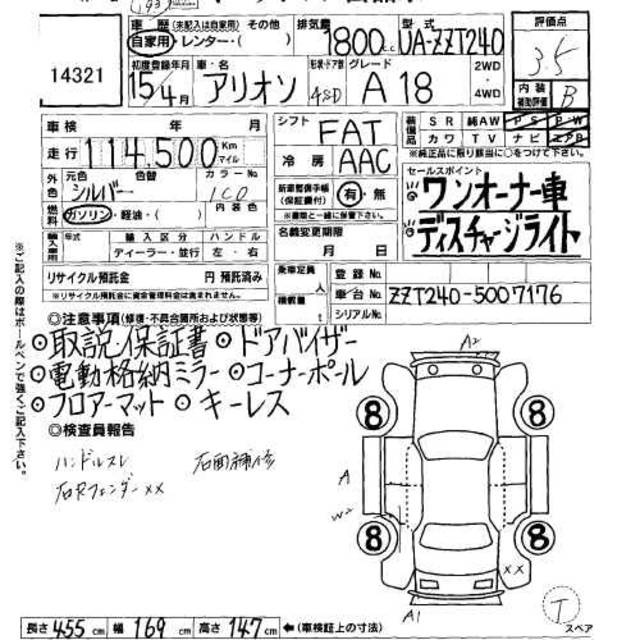 車歴 (未記入は自家用) その他
自家用・レンター・( )
排気量 1800cc
型式 UA-ZZT240
評価点 3.5
14321
初度登録年月 15/4月
車・名 アリオン
形状・ドア数 4SD
グレード A18
2WD ・ 4WD
内装補助評価 B
車検 年 月
シフト FAT
装備品 SR 純AW PS PW
カワ TV ナビ エアB
※純正品に限り該当に○をつけて下さい。
走行 114,500 Km マイル
冷房 AAC
外色 元色 シルバー 色替
カラーNo. 1C0
新車整備手帳 (保証書付) 有・無
※書類と一緒に保管下さい。
セールスポイント
ワンオーナー車
ディスチャージライト
燃料 ガソリン・軽油・( ) 内装色
名義変更期限 月 日
輸入車用 年式 輸入区分 ハンドル
ディーラー・並行 左・右
リサイクル預託金 円 預託済み
※リサイクル預託金に資金管理料金は含まれません。
乗車定員 人
登録No.
積載量 t
車台No. ZZT240-5007176
シリアルNo.
◎注意事項(修復・不具合箇所および状態等)
◎取説・保証書 ◎ドアバイザー
◎電動格納ミラー ◎コーナーポール
◎フロアーマット ◎キーレス
◎検査員報告
ハンドルスレ 右面補修
右Rフェンダーxx
※ご記入の際はボールペンで強くご記入下さい。
A2
8 8
A
W2
8 8
xx
A1
T
スペア
長さ 455cm 幅 169cm 高さ 147cm ←(車検証上の寸法)